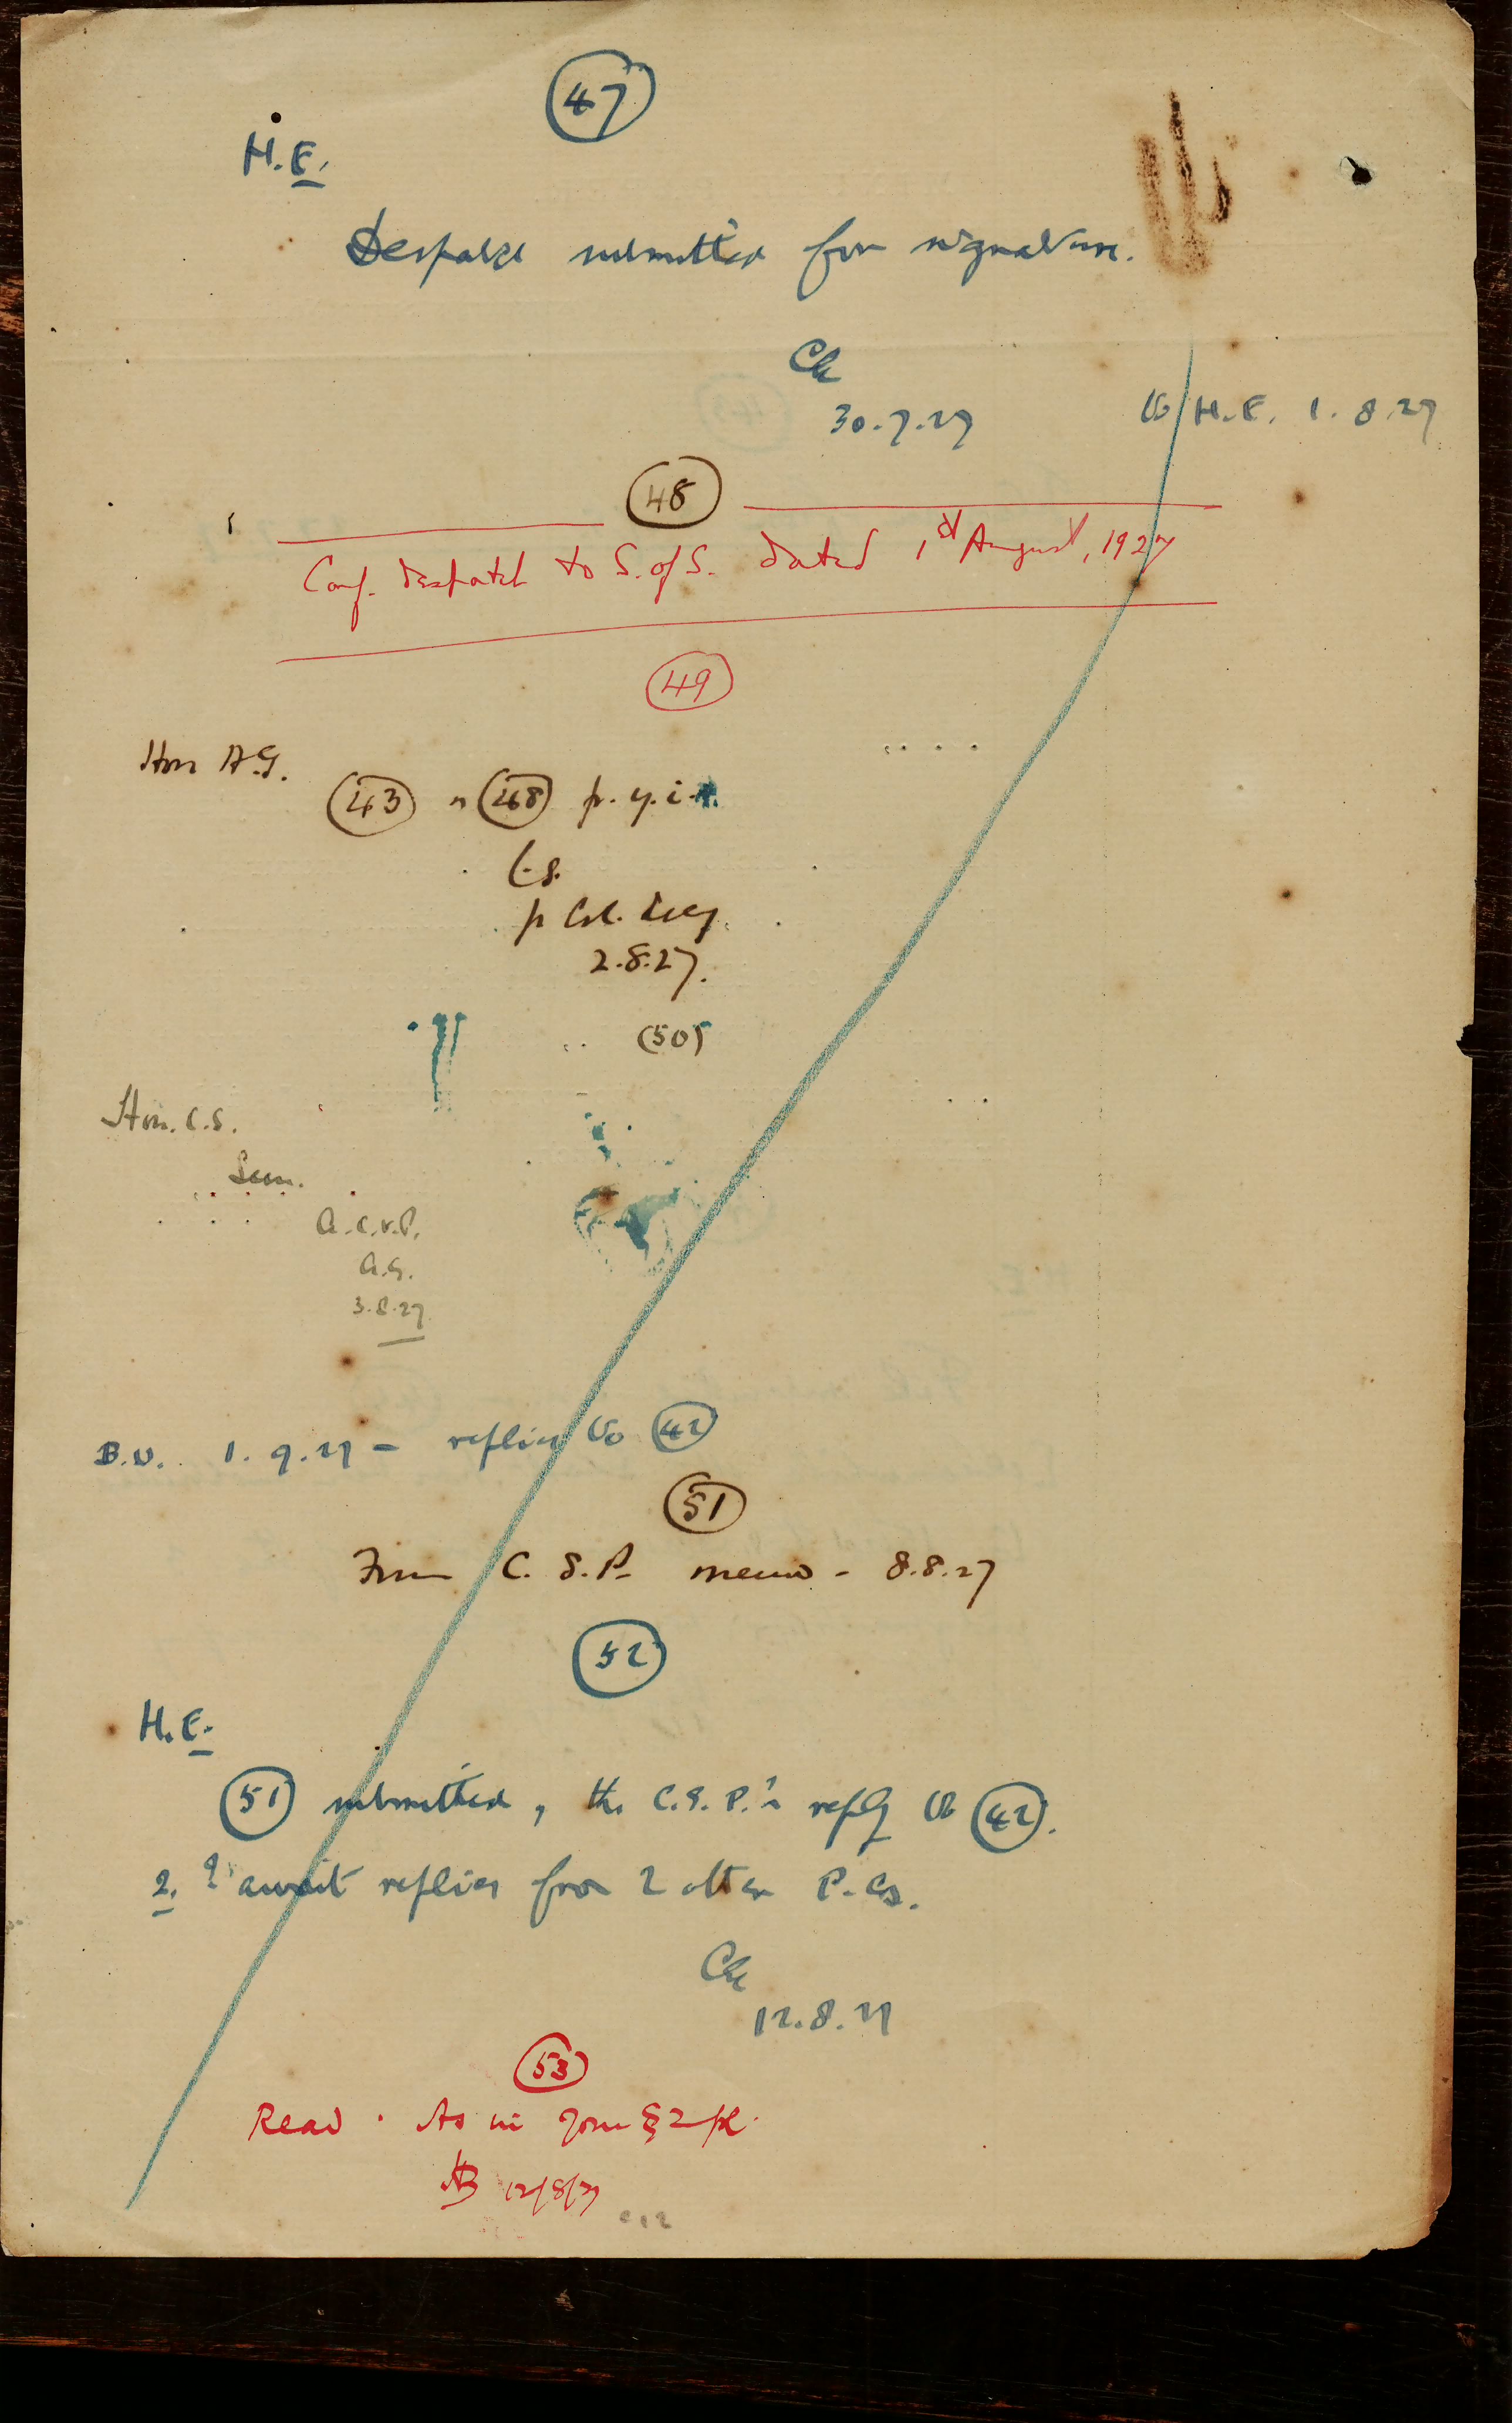 47
H.E.
Despatch submitted for signature.
30.7.27
To H.E. 1.8.27
48
Conf. despatch to S. of S. dated 1st August, 1927
49
Hon A.G.
43 & 48 p.y.i.
p Col. Secy.
2.8.27.
(50)
Hon. C.S.
Seen.
A.C.V.P.
A.G.
3.8.27
B.U. 1.9.27 – replies to 42
51
From C.S.P. memo - 8.8.27
52
H.E.
51 submitted, the C.S.P.'s reply to 42.
2. ? await replies from 2 other P.Cs.
12.8.27
53
Read. As in your § 2 pl.
12/8/27